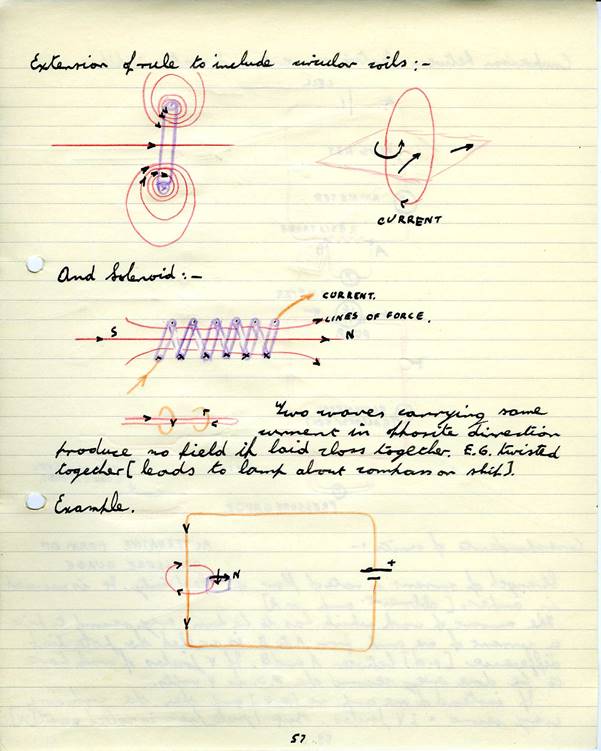 Extension of rule to include circular coils :-
CURRENT
And Solenoid :-
CURRENT.
S
LINES OF FORCE.
N
Two waves carrying same
current in oposite direction
produce no field if laid closs together. E.G. twisted
together [leads to lamp about compass on ship].
Example.
N
+
57